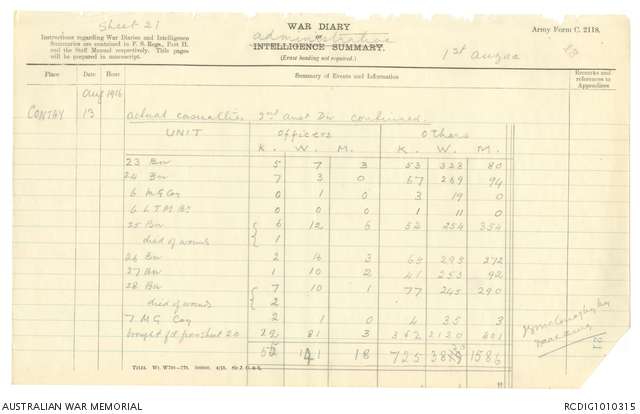 Sheet 21
WAR DIARY
Army Form C. 2118.
administrative
or
INTELLIGENCE SUMMARY.
(Erase heading not required.)
Instructions regarding War Diaries and Intelligence
Summaries are contained in F. S. Regs., Part II.
and the Staff Manual respectively. Title pages
will be prepared in manuscript.
1st Anzac
Place Date Hour Summary of Events and Information Remarks and references to Appendices
Aug 1916
CONTAY 13 Actual casualties 2nd Aust Div continued.
UNIT Officers Others
K. W. M. K. W. M.
23 Bn 5 7 3 53 323 80
24 Bn 7 3 0 67 269 94
6 M G Coy 0 1 0 3 19 0
6 L T M By 0 0 0 1 11 0
25 Bn 6 12 6 52 254 354
died of wounds 1
26 Bn 2 16 3 65 295 272
27 Bn 1 10 2 41 253 92
28 Bn 7 10 1 77 245 290
died of wounds 2
7 M G Coy 2 1 0 4 35 3
brought fd from sheet 20 22 81 3 362 2120 401
141 18 725 1586
AUSTRALIAN WAR MEMORIAL
RCDIG1010315